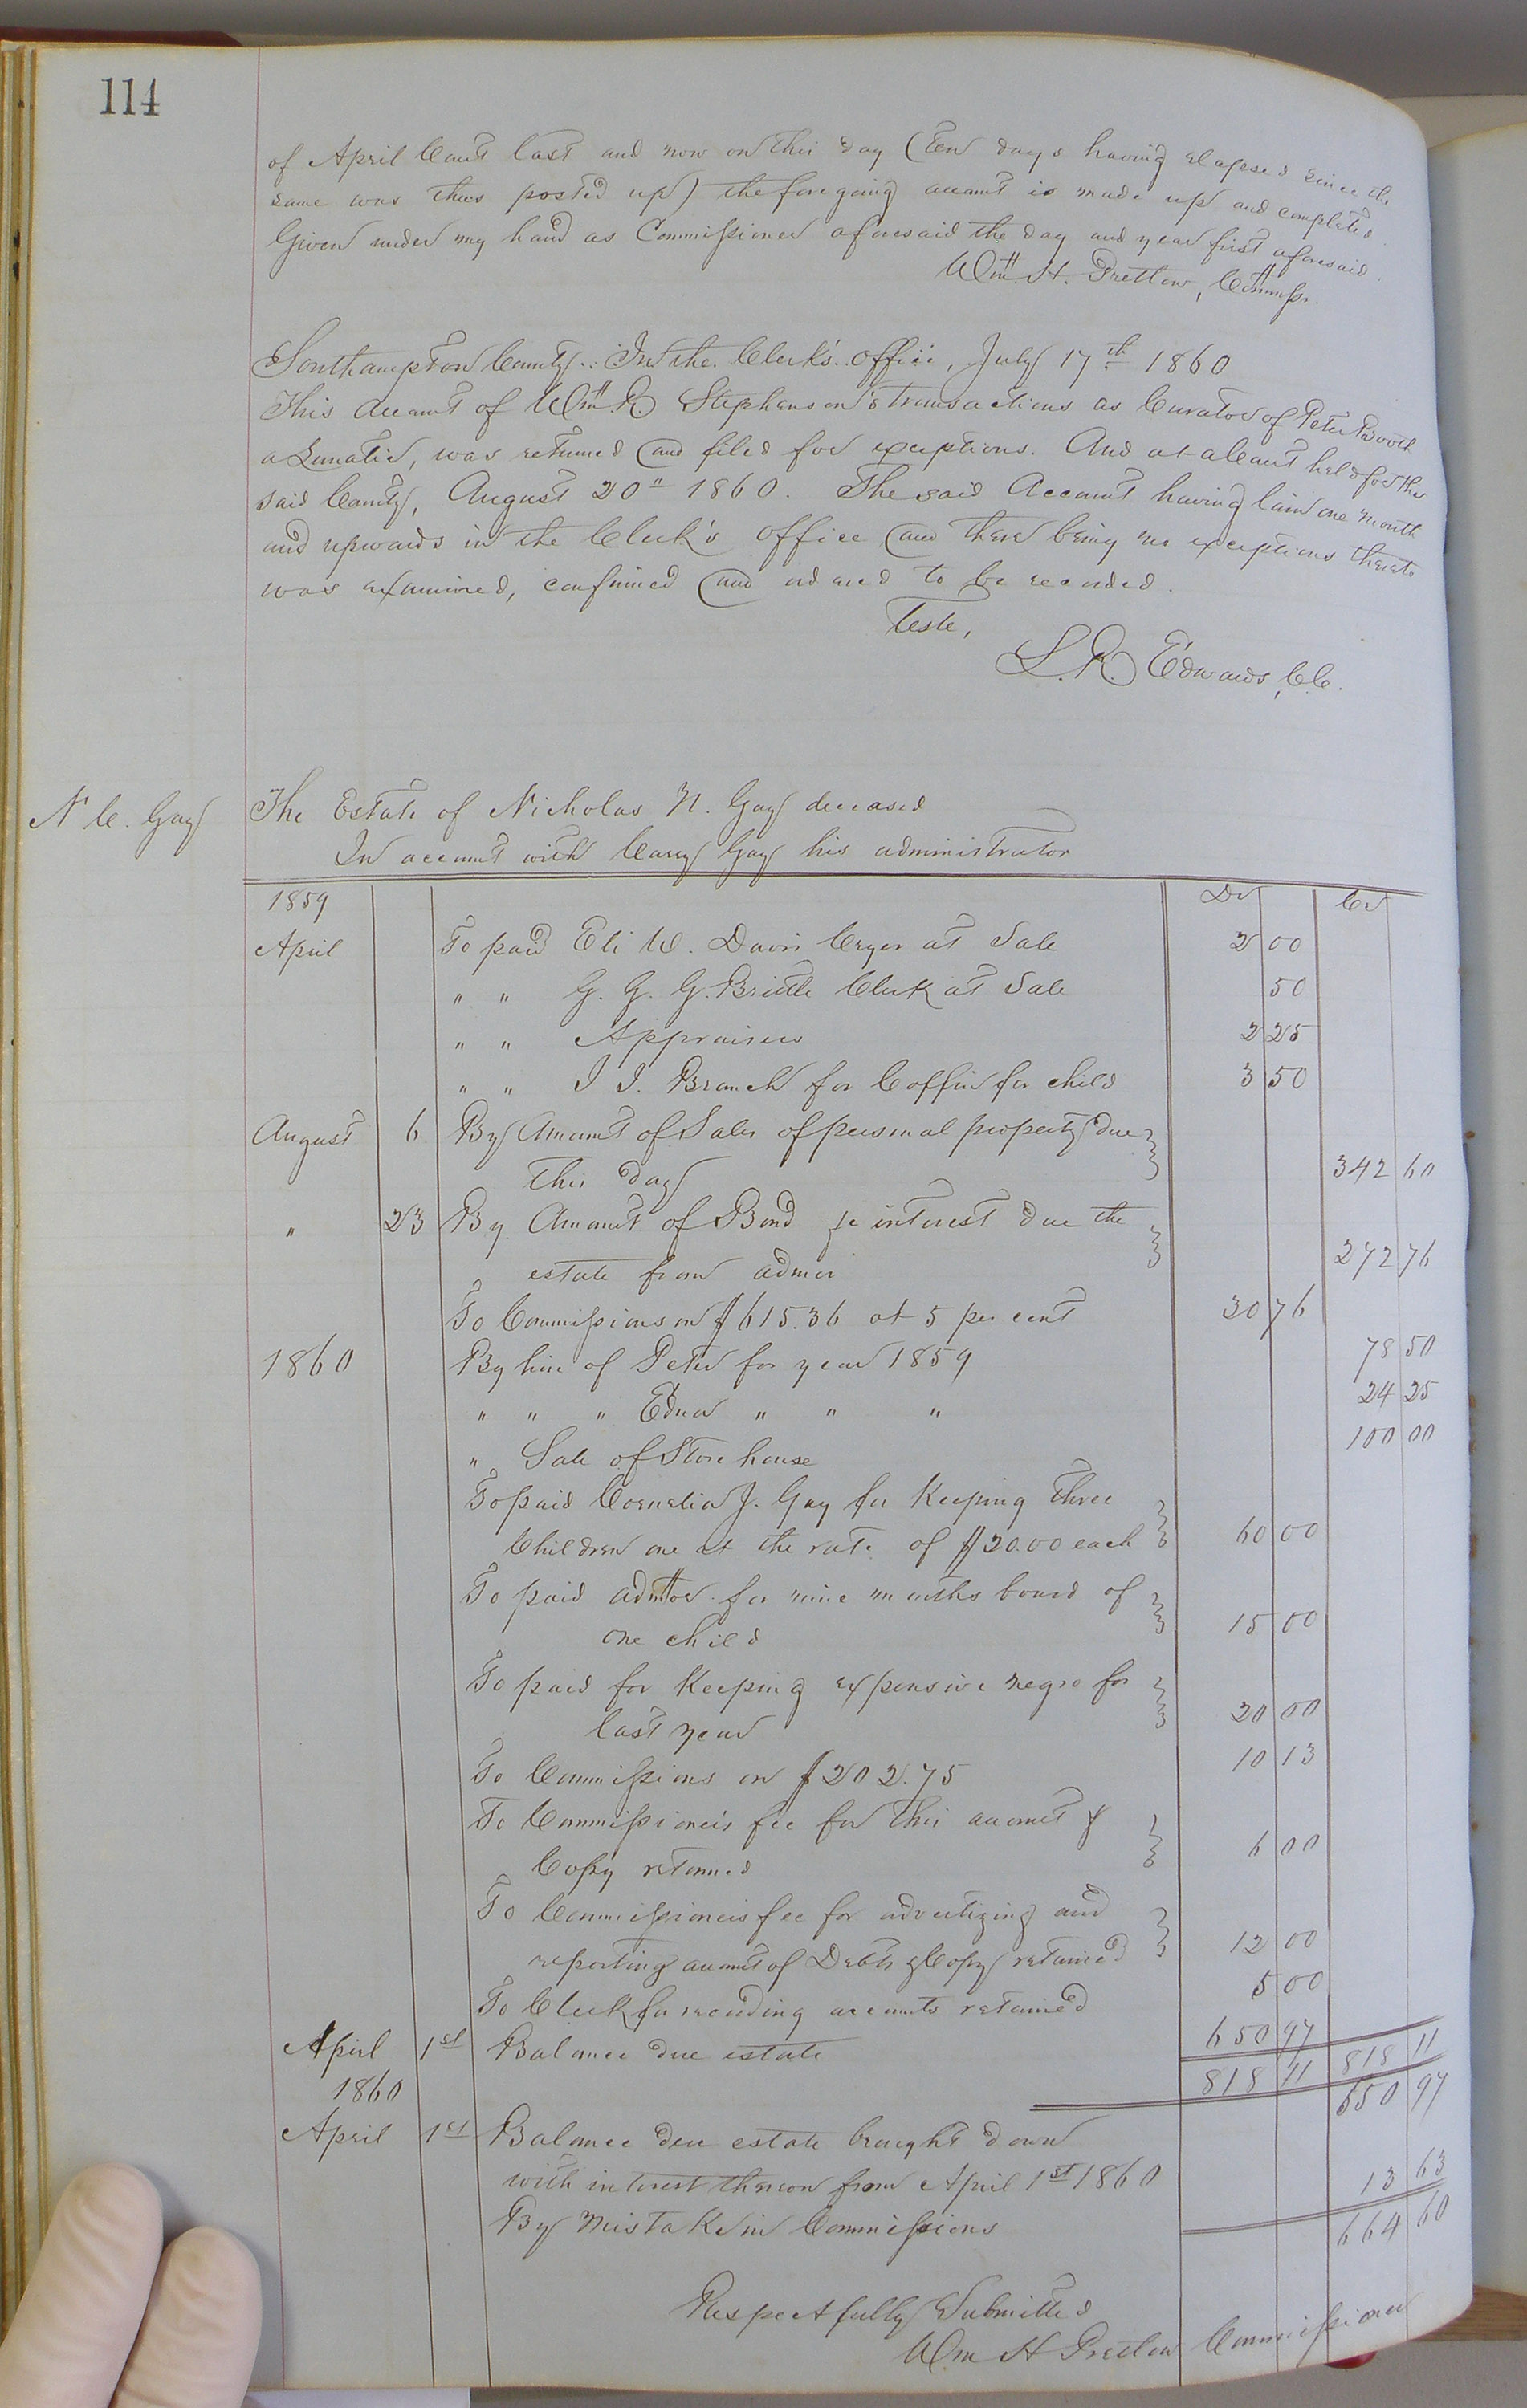 114
of April Court last and now on this day (Ten days having elapsed since the
same was thus posted up) the foregoing account is made up and completed.
Given under my hand as Commissioner aforesaid the day and year first aforesaid.
Wm. H. Pretlow, Commissr.
Southampton County: In the Clerk's Office, July 17th 1860
This Account of Wm. R. Stephenson's transactions as Curator of Peter Booth
a Lunatic, was returned and filed for exceptions. And at a Court held for the
said County, August 20" 1860. The said Account having lain one month
and upwards in the Clerk's office and there being no exceptions thereto
was examined, confirmed and ordered to be recorded.
Teste,
L. R. Edwards, C.C.
N C. Gay
The Estate of Nicholas N. Gay deceased
In account with Carey Gay his administrator
1859 Dr Cr
April To paid Eli W. Davis Cryer at Sale 2 00
" " G. G. G. Brittle Clerk at Sale 50
" " Appraisers 2 25
" " J J. Branch for Coffin for child 3 50
August 6 By Amount of Sales of personal property due
this day 342 60
" 23 By Amount of Bond & interest due the
estate from admor 272 76
To Commissions on $615.36 at 5 per cent 30 76
1860 By hire of Peter for year 1859 78 50
" " " Edna " " " 24 25
" Sale of Store house 100 00
To paid Cornelia J. Gay for Keeping Three
Children one at the rate of $20.00 each 60 00
To paid admor for nine months board of
one child 15 00
To paid for Keeping expensive negro for
last year 20 00
To Commissions on $202.75 10 13
To Commissioner's fee for this account &
Copy returned 6 00
To Commissioners fee for advertizing and
reporting account of Debts & Copy retained 12 00
To Clerk for recording accounts retained 5 00
April 1st Balance due estate 650 97
1860 818 11 818 11
April 1st Balance due estate brought down 650 97
with interest thereon from April 1st 1860
By Mistake in Commissions 13 63
664 60
Respectfully Submitted
Wm H Pretlow Commissioner